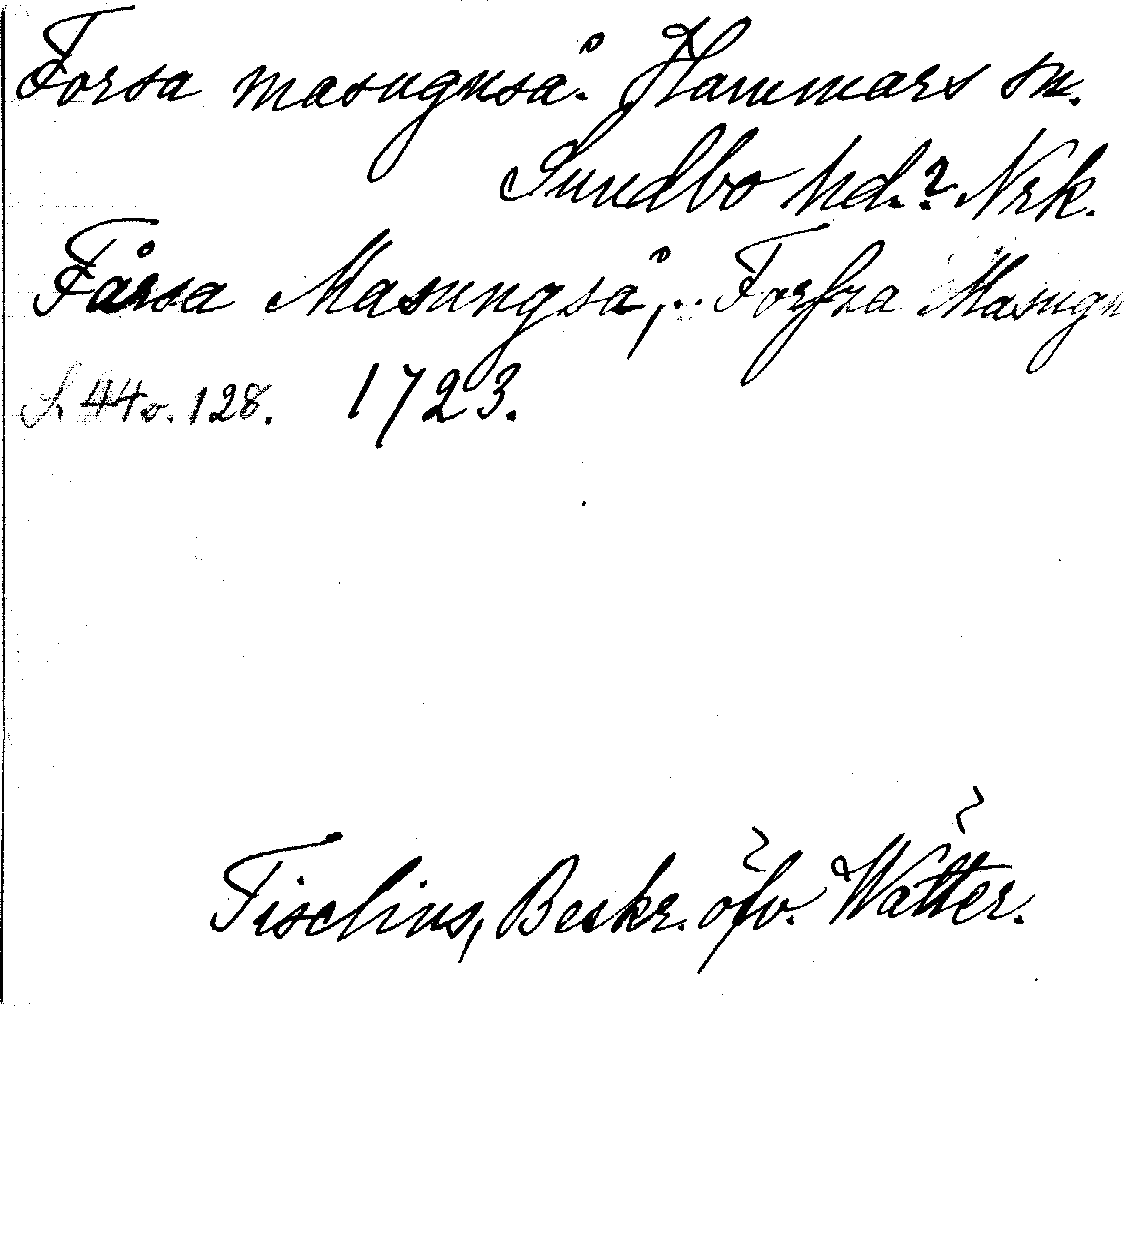 Forsa masugnså. Hammars sn.
Sundbo hd.? Nrk.
Fårsa Masungså, Forſza Masugn
S. 44 o. 128. 1723.
Tiselius, Beskr. öfv. Wätter.